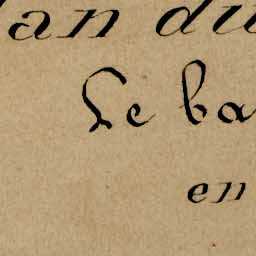 lan du
Le ba
en